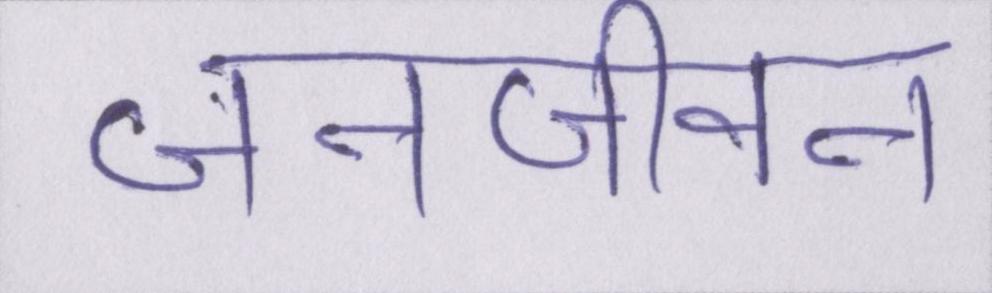 जनजीवन